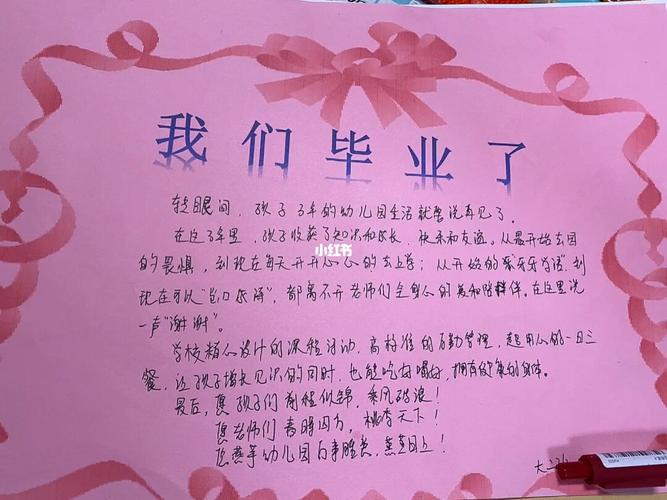 我们毕业了
转眼间，孩子3年的幼儿园生活就要说再见了。
在这3年里，孩子收获了知识和成长、快乐和友谊。从最开始去园
的畏惧，到现在每天开开心心的去上学；从开始的 到
现在可以"出口成诵"，都离不开老师们全身心的 和陪伴。在这里说
一声"谢谢"。
学校精心设计的课程活动、高标准的后勤管理、超用心的一日三
餐，让孩子增长见识的同时，也能吃好喝好，拥有 的身体。
最后，愿孩子们前程似锦，乘风破浪！
愿老师们青春因为，桃李天下！
愿燕莘幼儿园百事胜意，蒸蒸日上！
小红书